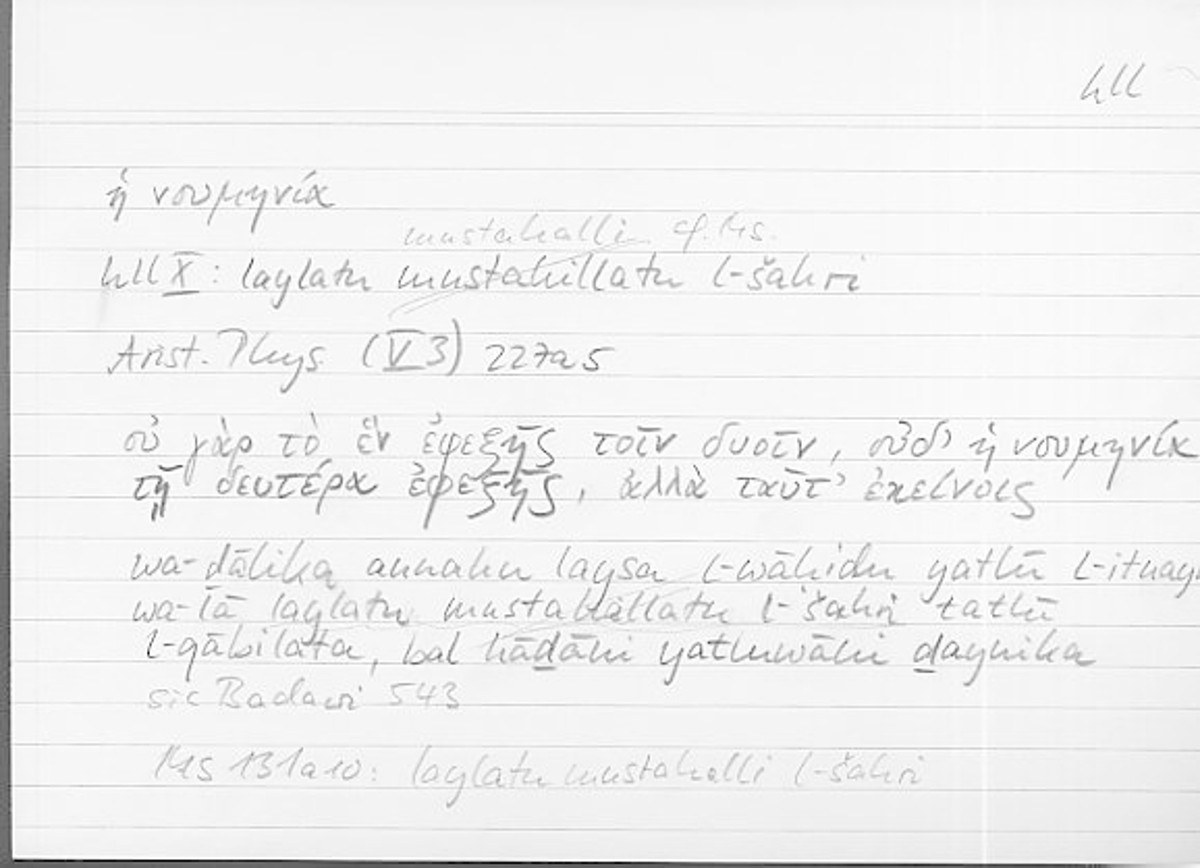 hll
ἡ νουμηνία
mustahalli cf. Ms.
hll X: laylatu mustahillatu l-šahri
Arist. Phys. (V 3) 227a5
οὐ γὰρ τὸ ἓν ἐφεξῆς τοῖν δυοῖν, οὐδ' ἡ νουμηνία
τῇ δευτέρα ἐφεξῆς, ἀλλὰ ταῦτ' ἐκείνοις
wa-ḏālika annahu laysa l-wāḥidu yatlū l-iṯnay
wa-lā laylatu mustahillatu l-šahri tatlū
l-qābilata, bal hāḏāni yatluwāni ḏaynika
sic Badawi 543
Ms 131a10: laylatu mustahalli l-šahri